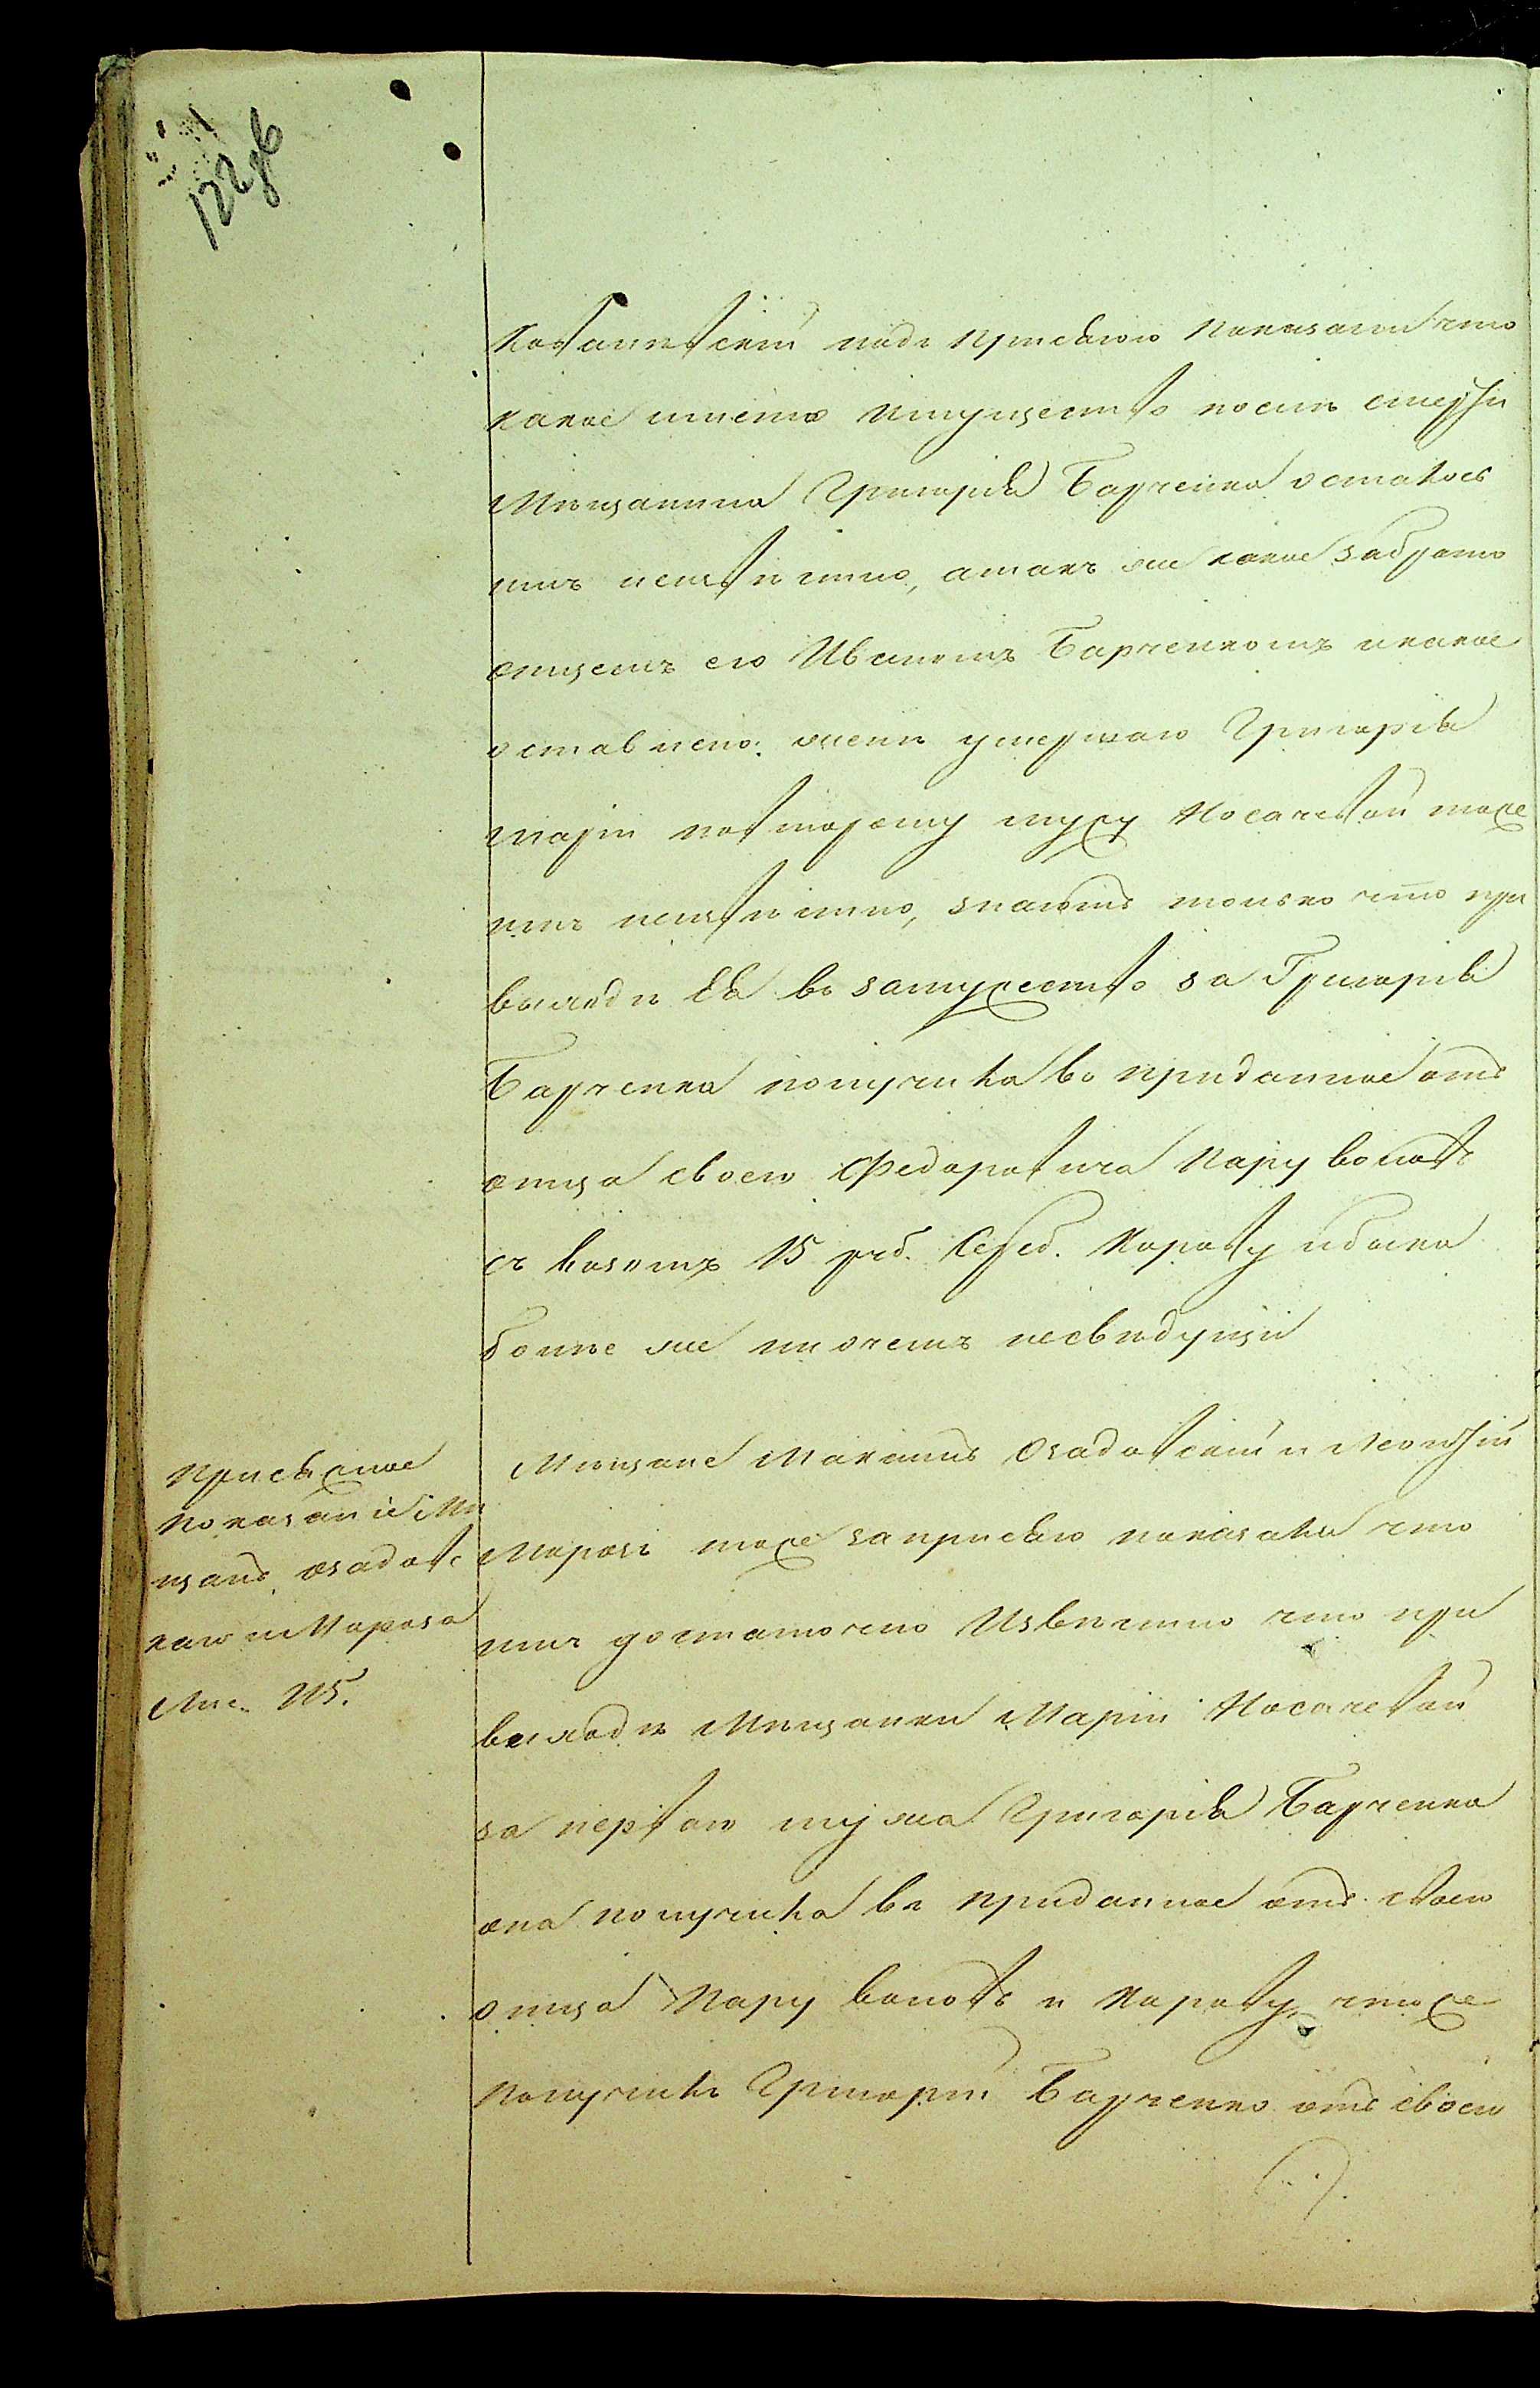 122 об
подъ присягою показали что
какое имѣнно имущество послѣ смерти
Мѣщанина Григорія Барченка осталось
имъ неизвѣстно, атакъ же какое забрато
отцемъ его Иваномъ Барченкомъ икакое
оставлено женѣ умершаго Григорія
Маріи повторому мужу Носачевой тоже
имъ неизвѣстно, знаютъ только что при
выходѣ ея въ замужество за Григорія
Барченка получила въ приданное отъ
отца своего Федоровича пару воловъ
съ возомъ 15 руб. Сереб. Корову ибыка
болѣе же ни очемъ несвѣдущи
Присяжное
показаніе Мѣ
щанъ Озадовс
каго и Мороза
Лис. 115.
Мѣщане Максимъ Озадовскій и Леонтій
Морозъ тоже заприсягою показали что
имъ достаточно Извѣстно что при
выходѣ Мѣщанки Маріи Носачевой
за перваго мужа Григорія Барченка
она получила въ приданное отъ своего
отца Пару воловъ и Корову, чтоже
получилъ Григорій Барченко отъ своего